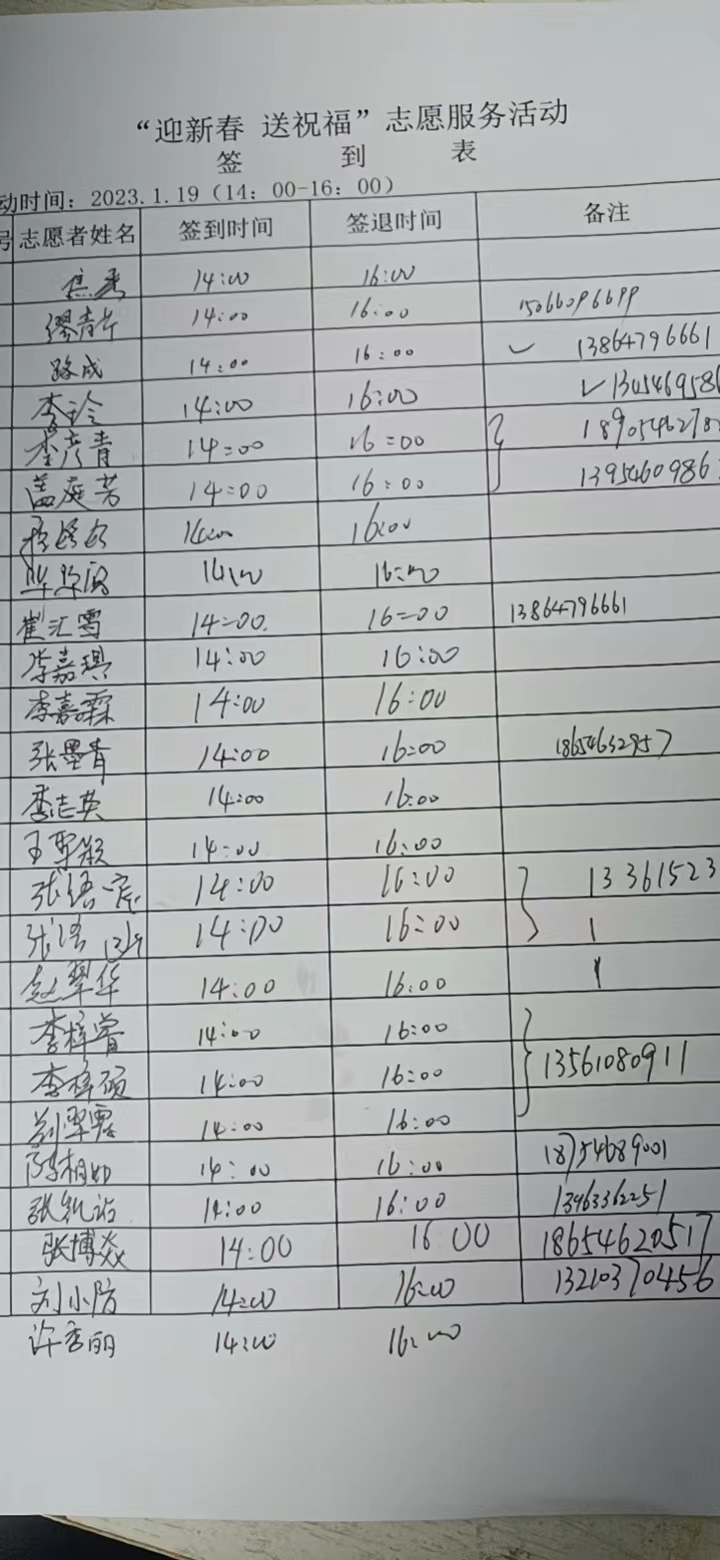 “迎新春 送祝福”志愿服务活动
签 到 表
动时间：2023.1.19（14：00-16：00）
号 志愿者姓名 签到时间 签退时间 备注
焦秀 14:00 16:00
缪青芹 14:00 16:00 15066096699
路成 14:00 16:00 ✓ 13864796661
李玲 14:00 16:00 ✓
李彦青 14=00 16=00
盖庭芳 14=00 16:00
14:00 16:00
14:00 16:00
崔汇雪 14=00. 16=00 13864796661
李嘉琪 14:00 16:00
李嘉霖 14:00 16:00
张墨青 14:00 16:00 18654632957
李志英 14:00 16:00
王翠颖 14:00 16:00
张语宸 14:00 16:00 13361523
张语 14:00 16:00
赵翠华 14:00 16:00
李梓睿 14:00 16:00
李梓硕 14:00 16:00 13561080911
刘翠霞 14:00 16:00
陈相如 14:00 16:00 18754689001
14:00 16:00 13963362251
张博焱 14:00 16 00 18654620517
刘小防 14:00 16:00 13210370456
许秀丽 14:00 16:00